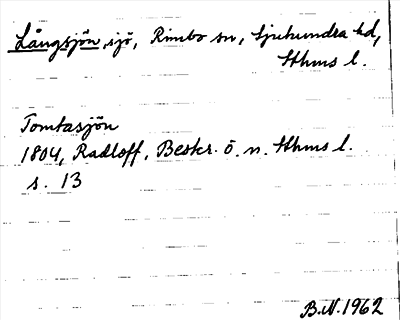 Långsjön, sjö, Rimbo sn, Sjuhundra hd,
Sthms l.
Tomtasjön
1804, Radloff, Beskr. ö. n. Sthms l.
s. 13
B.N. 1962